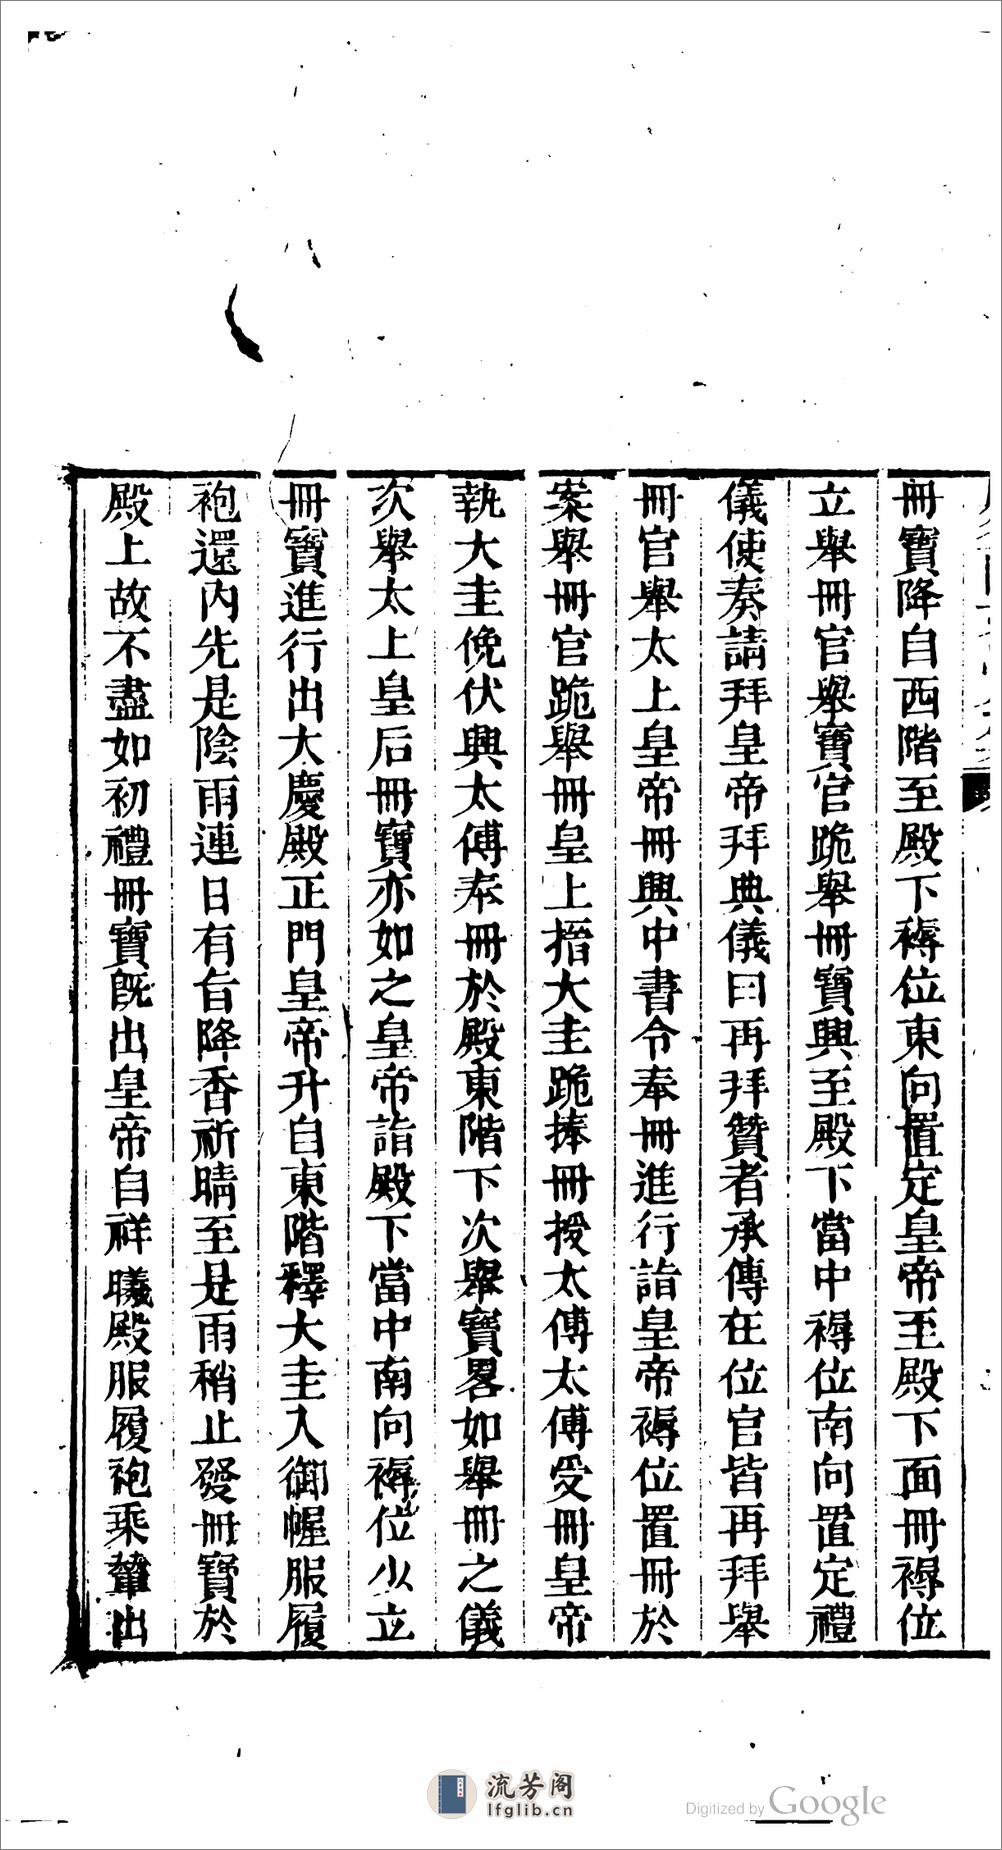 冊寶降自西階至殿下褥位東向置定皇帝至殿下面冊褥位
立舉冊官舉寶官跪舉冊寶興至殿下當中褥位南向置定禮
儀使奏請拜皇帝拜典儀曰再拜贊者承傳在位官皆再拜舉
冊官舉太上皇帝冊興中書令奉冊進行詣皇帝褥位置冊於
案舉冊官跪舉冊皇上搢大圭跪捧冊授太傅太傅受冊皇帝
執大圭俛伏興太傅奉冊於殿東階下次舉寶畧如舉冊之儀
次舉太上皇后冊寶亦如之皇帝詣殿下當中南向褥位少立
冊寶進行出大慶殿正門皇帝升自東階釋大圭入御幄服履
袍還內先是陰雨連日有旨降香祈晴至是雨稍止發冊寶於
殿上故不盡如初禮冊寶既出皇帝自祥曦殿服履袍乘輦出
流芳阁
lfglib.cn
Digitized by Google